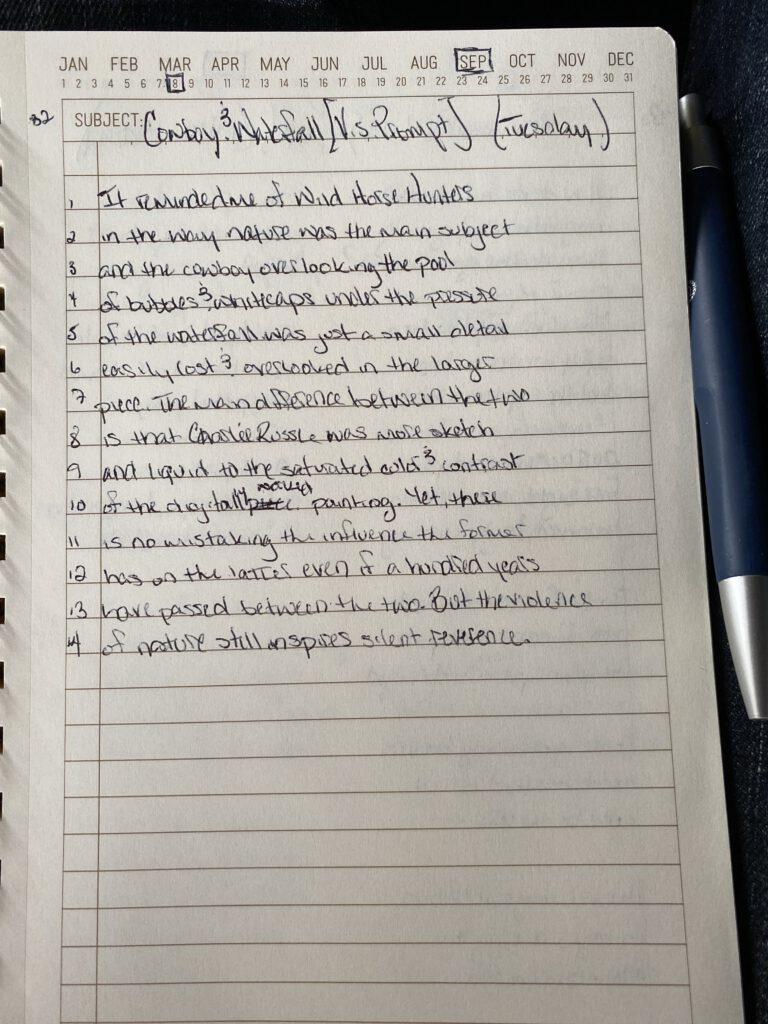 JAN FEB MAR APR MAY JUN JUL AUG SEP OCT NOV DEC
1 2 3 4 5 6 7 8 9 10 11 12 13 14 15 16 17 18 19 20 21 22 23 24 25 26 27 28 29 30 31
82 SUBJECT: Cowboy & Waterfall [V.S. Prompt] (Tuesday)
1 It reminded me of Wild Horse Hunters
2 in the way nature was the main subject
3 and the cowboy overlooking the pool
4 of bubbles & whitecaps under the pressure
5 of the waterfall was just a small detail
6 easily lost & overlooked in the larger
7 piece. The main difference between the two
8 is that Charlie Russle was more sketch
9 and liquid to the saturated color & contrast
10 of the digitally painting. Yet, there
11 is no mistaking the influence the former
12 has on the latter even if a hundred years
13 have passed between the two. But the violence
14 of nature still inspires silent reverence.